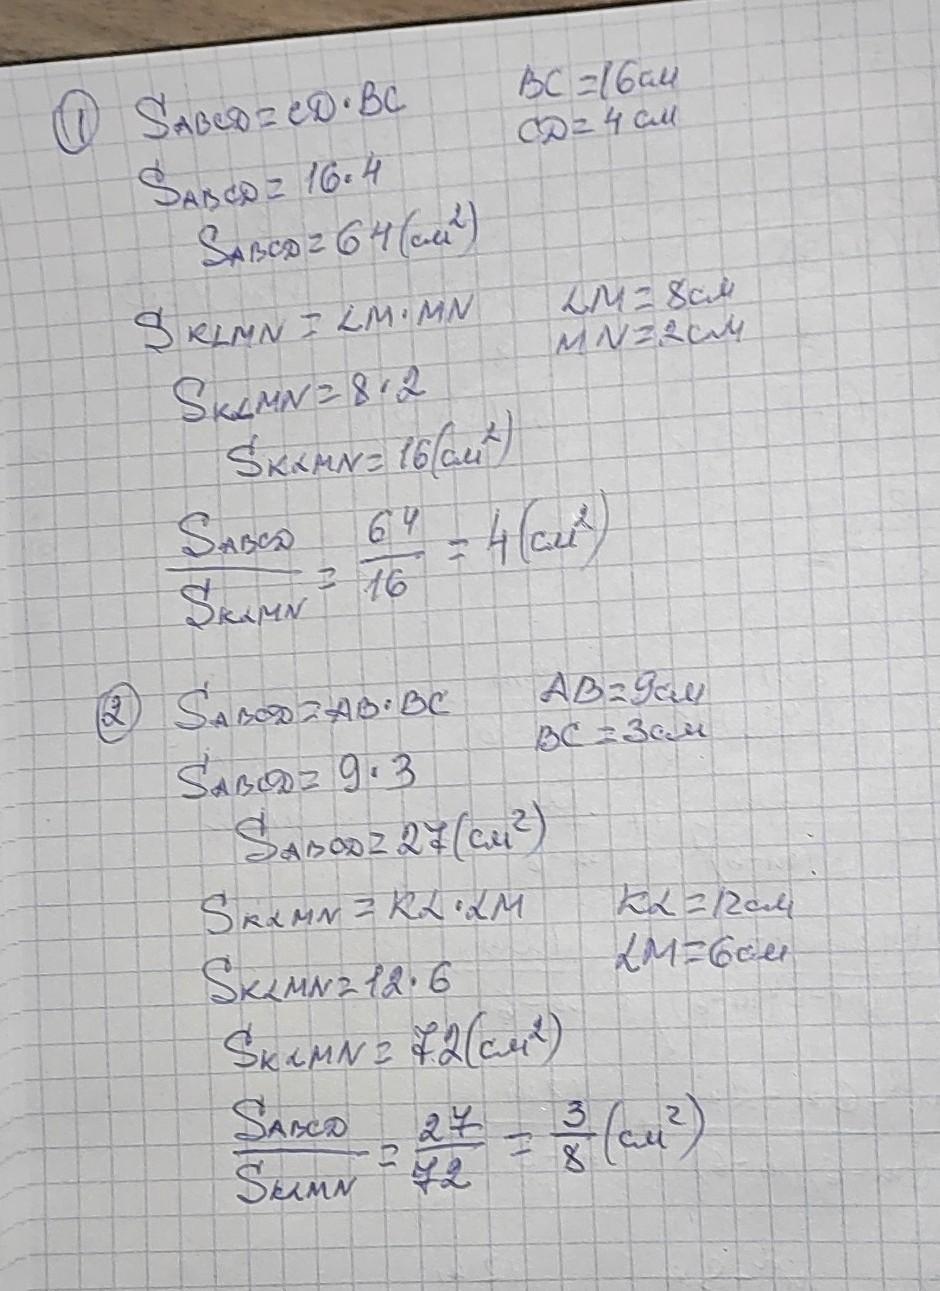 1 SABCD = CD · BC BC = 16 см
CD = 4 см
SABCD = 16 · 4
SABCD = 64 (см²)
SKLMN = LM · MN LM = 8 см
MN = 2 см
SKLMN = 8 · 2
SKLMN = 16 (см²)
SABCD/SKLMN = 64/16 = 4 (см²)
2 SABCD = AB · BC AB = 9 см
BC = 3 см
SABCD = 9 · 3
SABCD = 27 (см²)
SKLMN = KL · LM KL = 12 см
LM = 6 см
SKLMN = 12 · 6
SKLMN = 72 (см²)
SABCD/SKLMN = 27/72 = 3/8 (см²)